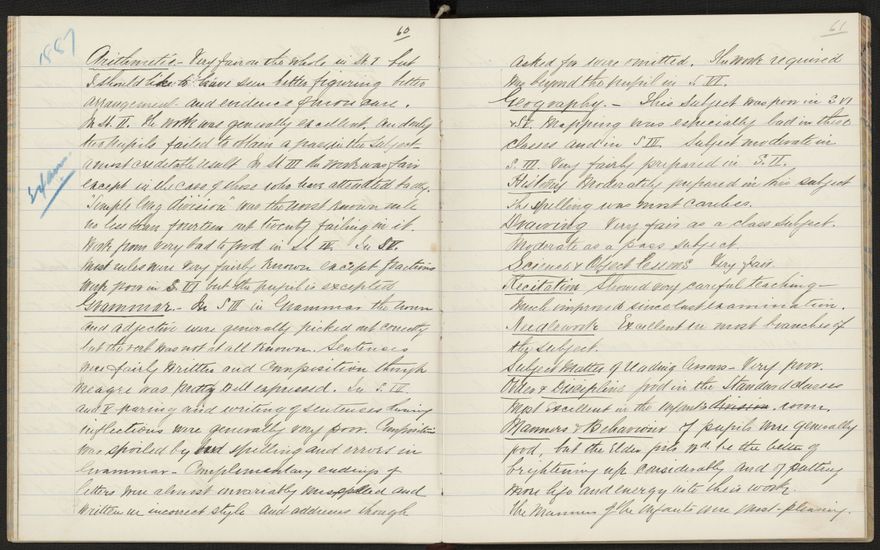 60
1887
Arithmetic - Very fair on the whole in St. I but
I should like to have seen better figuring better
arrangement and evidence of more care.
In St. II. the work was generally excellent, and only
two pupils failed to obtain a pass in the subject
a most creditable result In St III the work was fair
except in the case of those who have attended badly.
"Simple long division" was the worst known rule
no less than fourteen out twenty failing in it.
Exam
Work from very bad to good in St IV. In SV.
most rules were very fairly known except fractions
work poor in S. VI but the pupil is excepted
Grammar. - In S III in Grammar the noun
and adjective were generally picked out correctly
but the verb was not at all known. Sentences
were fairly written and composition though
meagre was pretty well expressed. In S. IV
and V parsing and writing of sentences
inflections were generally very poor. Composition
was spoiled by bad spelling and errors in
Grammar - Complimentary endings of
letters were almost invariably misspelled and
written in incorrect style and address though
61
asked for were omitted. The work required
was beyond the pupil in S VI.
Geography. - This subject was poor in S VI
& SV. Mapping was especially bad in these
classes and in S IV. Subject moderate in
S. III. Very fairly prepared in S. II.
History Moderately prepared in this subject
The spelling was most careless.
Drawing Very fair as a class subject.
Moderate as a pass subject.
Science & Object Lessons Very fair
Recitation Showed very careful teaching -
Much improved since last examination.
Needlework Excellent in most branches of
the subject.
Subject Matter of Reading lessons - Very poor.
Order & Discipline good in the Standard classes
Most excellent in the infants division room.
Manners & Behaviour of pupils were generally
good, but the Elder girls wd. be the better of
brightening up considerably and of putting
more life and energy into their work.
The manners of the Infants were most pleasing.